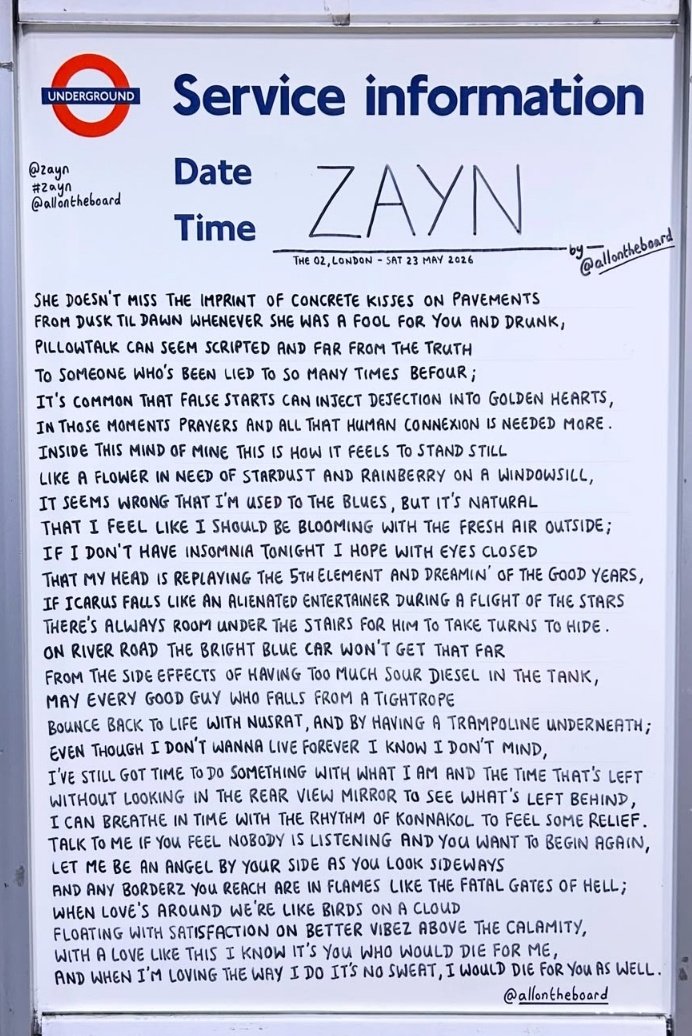 UNDERGROUND
Service information
@zayn
#zayn
@allontheboard
Date
Time
ZAYN
THE O2, LONDON - SAT 23 MAY 2026
by—
@allontheboard
SHE DOESN'T MISS THE IMPRINT OF CONCRETE KISSES ON PAVEMENTS
FROM DUSK TIL DAWN WHENEVER SHE WAS A FOOL FOR YOU AND DRUNK,
PILLOWTALK CAN SEEM SCRIPTED AND FAR FROM THE TRUTH
TO SOMEONE WHO'S BEEN LIED TO SO MANY TIMES BEFOUR;
IT'S COMMON THAT FALSE STARTS CAN INJECT DEJECTION INTO GOLDEN HEARTS,
IN THOSE MOMENTS PRAYERS AND ALL THAT HUMAN CONNEXION IS NEEDED MORE.
INSIDE THIS MIND OF MINE THIS IS HOW IT FEELS TO STAND STILL
LIKE A FLOWER IN NEED OF STARDUST AND RAINBERRY ON A WINDOWSILL,
IT SEEMS WRONG THAT I'M USED TO THE BLUES, BUT IT'S NATURAL
THAT I FEEL LIKE I SHOULD BE BLOOMING WITH THE FRESH AIR OUTSIDE;
IF I DON'T HAVE INSOMNIA TONIGHT I HOPE WITH EYES CLOSED
THAT MY HEAD IS REPLAYING THE 5TH ELEMENT AND DREAMIN' OF THE GOOD YEARS,
IF ICARUS FALLS LIKE AN ALIENATED ENTERTAINER DURING A FLIGHT OF THE STARS
THERE'S ALWAYS ROOM UNDER THE STAIRS FOR HIM TO TAKE TURNS TO HIDE.
ON RIVER ROAD THE BRIGHT BLUE CAR WON'T GET THAT FAR
FROM THE SIDE EFFECTS OF HAVING TOO MUCH SOUR DIESEL IN THE TANK,
MAY EVERY GOOD GUY WHO FALLS FROM A TIGHTROPE
BOUNCE BACK TO LIFE WITH NUSRAT, AND BY HAVING A TRAMPOLINE UNDERNEATH;
EVEN THOUGH I DON'T WANNA LIVE FOREVER I KNOW I DON'T MIND,
I'VE STILL GOT TIME TO DO SOMETHING WITH WHAT I AM AND THE TIME THAT'S LEFT
WITHOUT LOOKING IN THE REAR VIEW MIRROR TO SEE WHAT'S LEFT BEHIND,
I CAN BREATHE IN TIME WITH THE RHYTHM OF KONNAKOL TO FEEL SOME RELIEF.
TALK TO ME IF YOU FEEL NOBODY IS LISTENING AND YOU WANT TO BEGIN AGAIN,
LET ME BE AN ANGEL BY YOUR SIDE AS YOU LOOK SIDEWAYS
AND ANY BORDERZ YOU REACH ARE IN FLAMES LIKE THE FATAL GATES OF HELL;
WHEN LOVE'S AROUND WE'RE LIKE BIRDS ON A CLOUD
FLOATING WITH SATISFACTION ON BETTER VIBEZ ABOVE THE CALAMITY,
WITH A LOVE LIKE THIS I KNOW IT'S YOU WHO WOULD DIE FOR ME,
AND WHEN I'M LOVING THE WAY I DO IT'S NO SWEAT, I WOULD DIE FOR YOU AS WELL.
@allontheboard